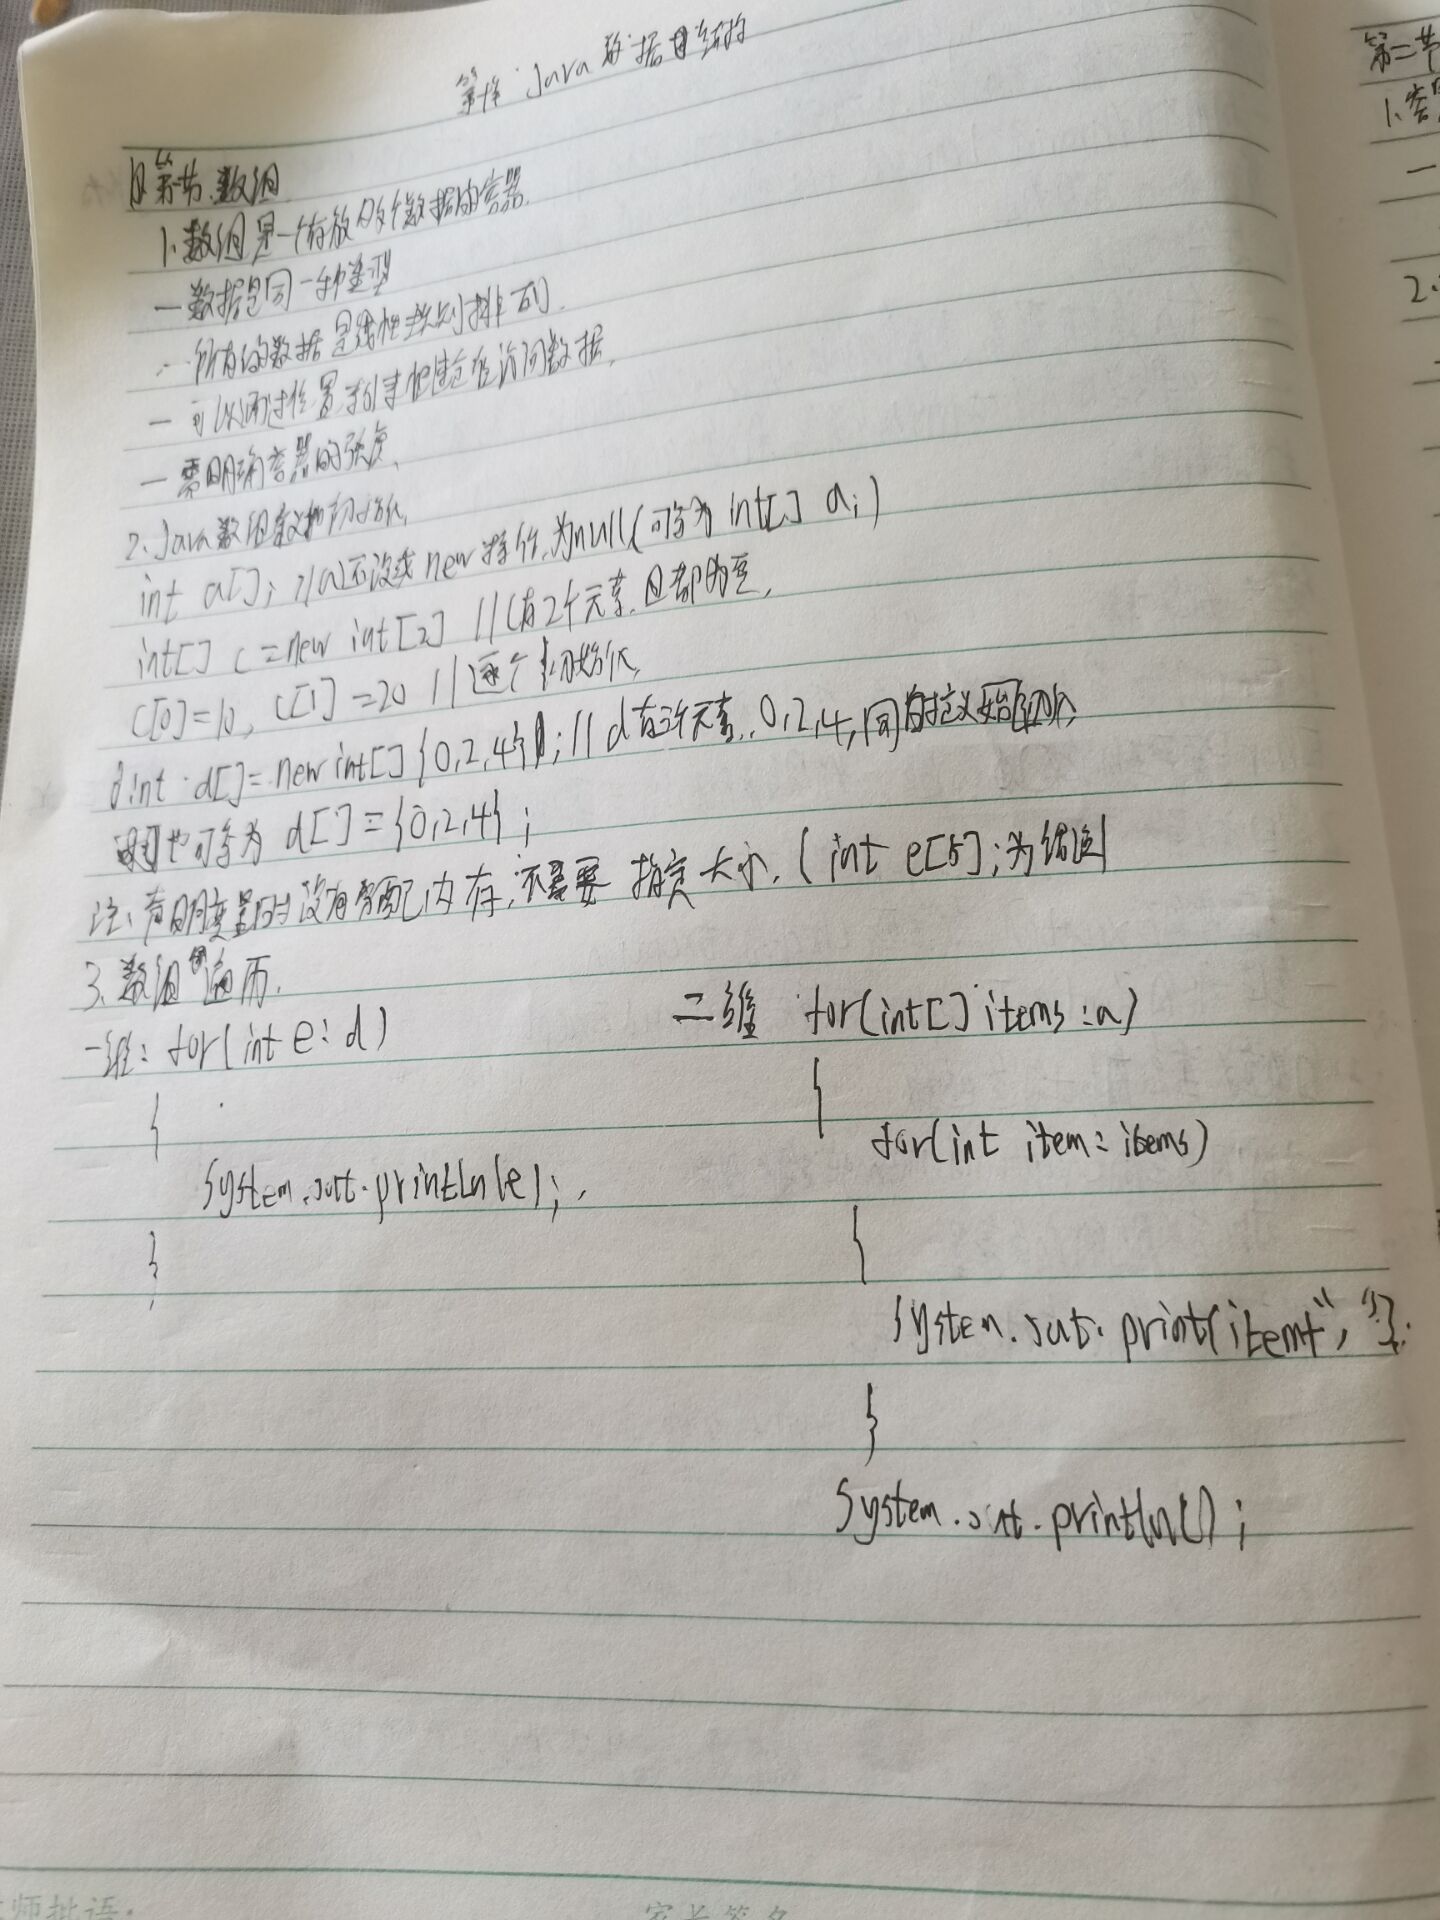 第十章 Java数据结构
第一节、数组
1、数组是一个存放多个数据的容器.
一数据是同一种类型
一所有的数据是线性规则排列.
一可以通过位置索引来快速定位访问数据,
一需明确容器的长度、
2、Java数组定义和初始化,
int a[]; //a还没有new操作,为null(可写为 int[] a;)
int[] c=new int[2] //c有2个元素,且都为零,
c[0]=10, c[1]=20 //逐个初始化,
int d[]=new int[]{0,2,4}; //d有三个元素,0,2,4,同时定义
也可写为 d[]={0,2,4};
注、声明变量时没有分配内存,不需要 指定大小,(int e[5];为错误)
3、数组的遍历.
一维: for(int e:d)
{
System.out.println(e);
}
二维 for(int[] items:a)
{
for(int item:items)
{
System.out.print(item+", ");
}
System.out.println();
第二节
1、
一
2、
师批语:
家长签名